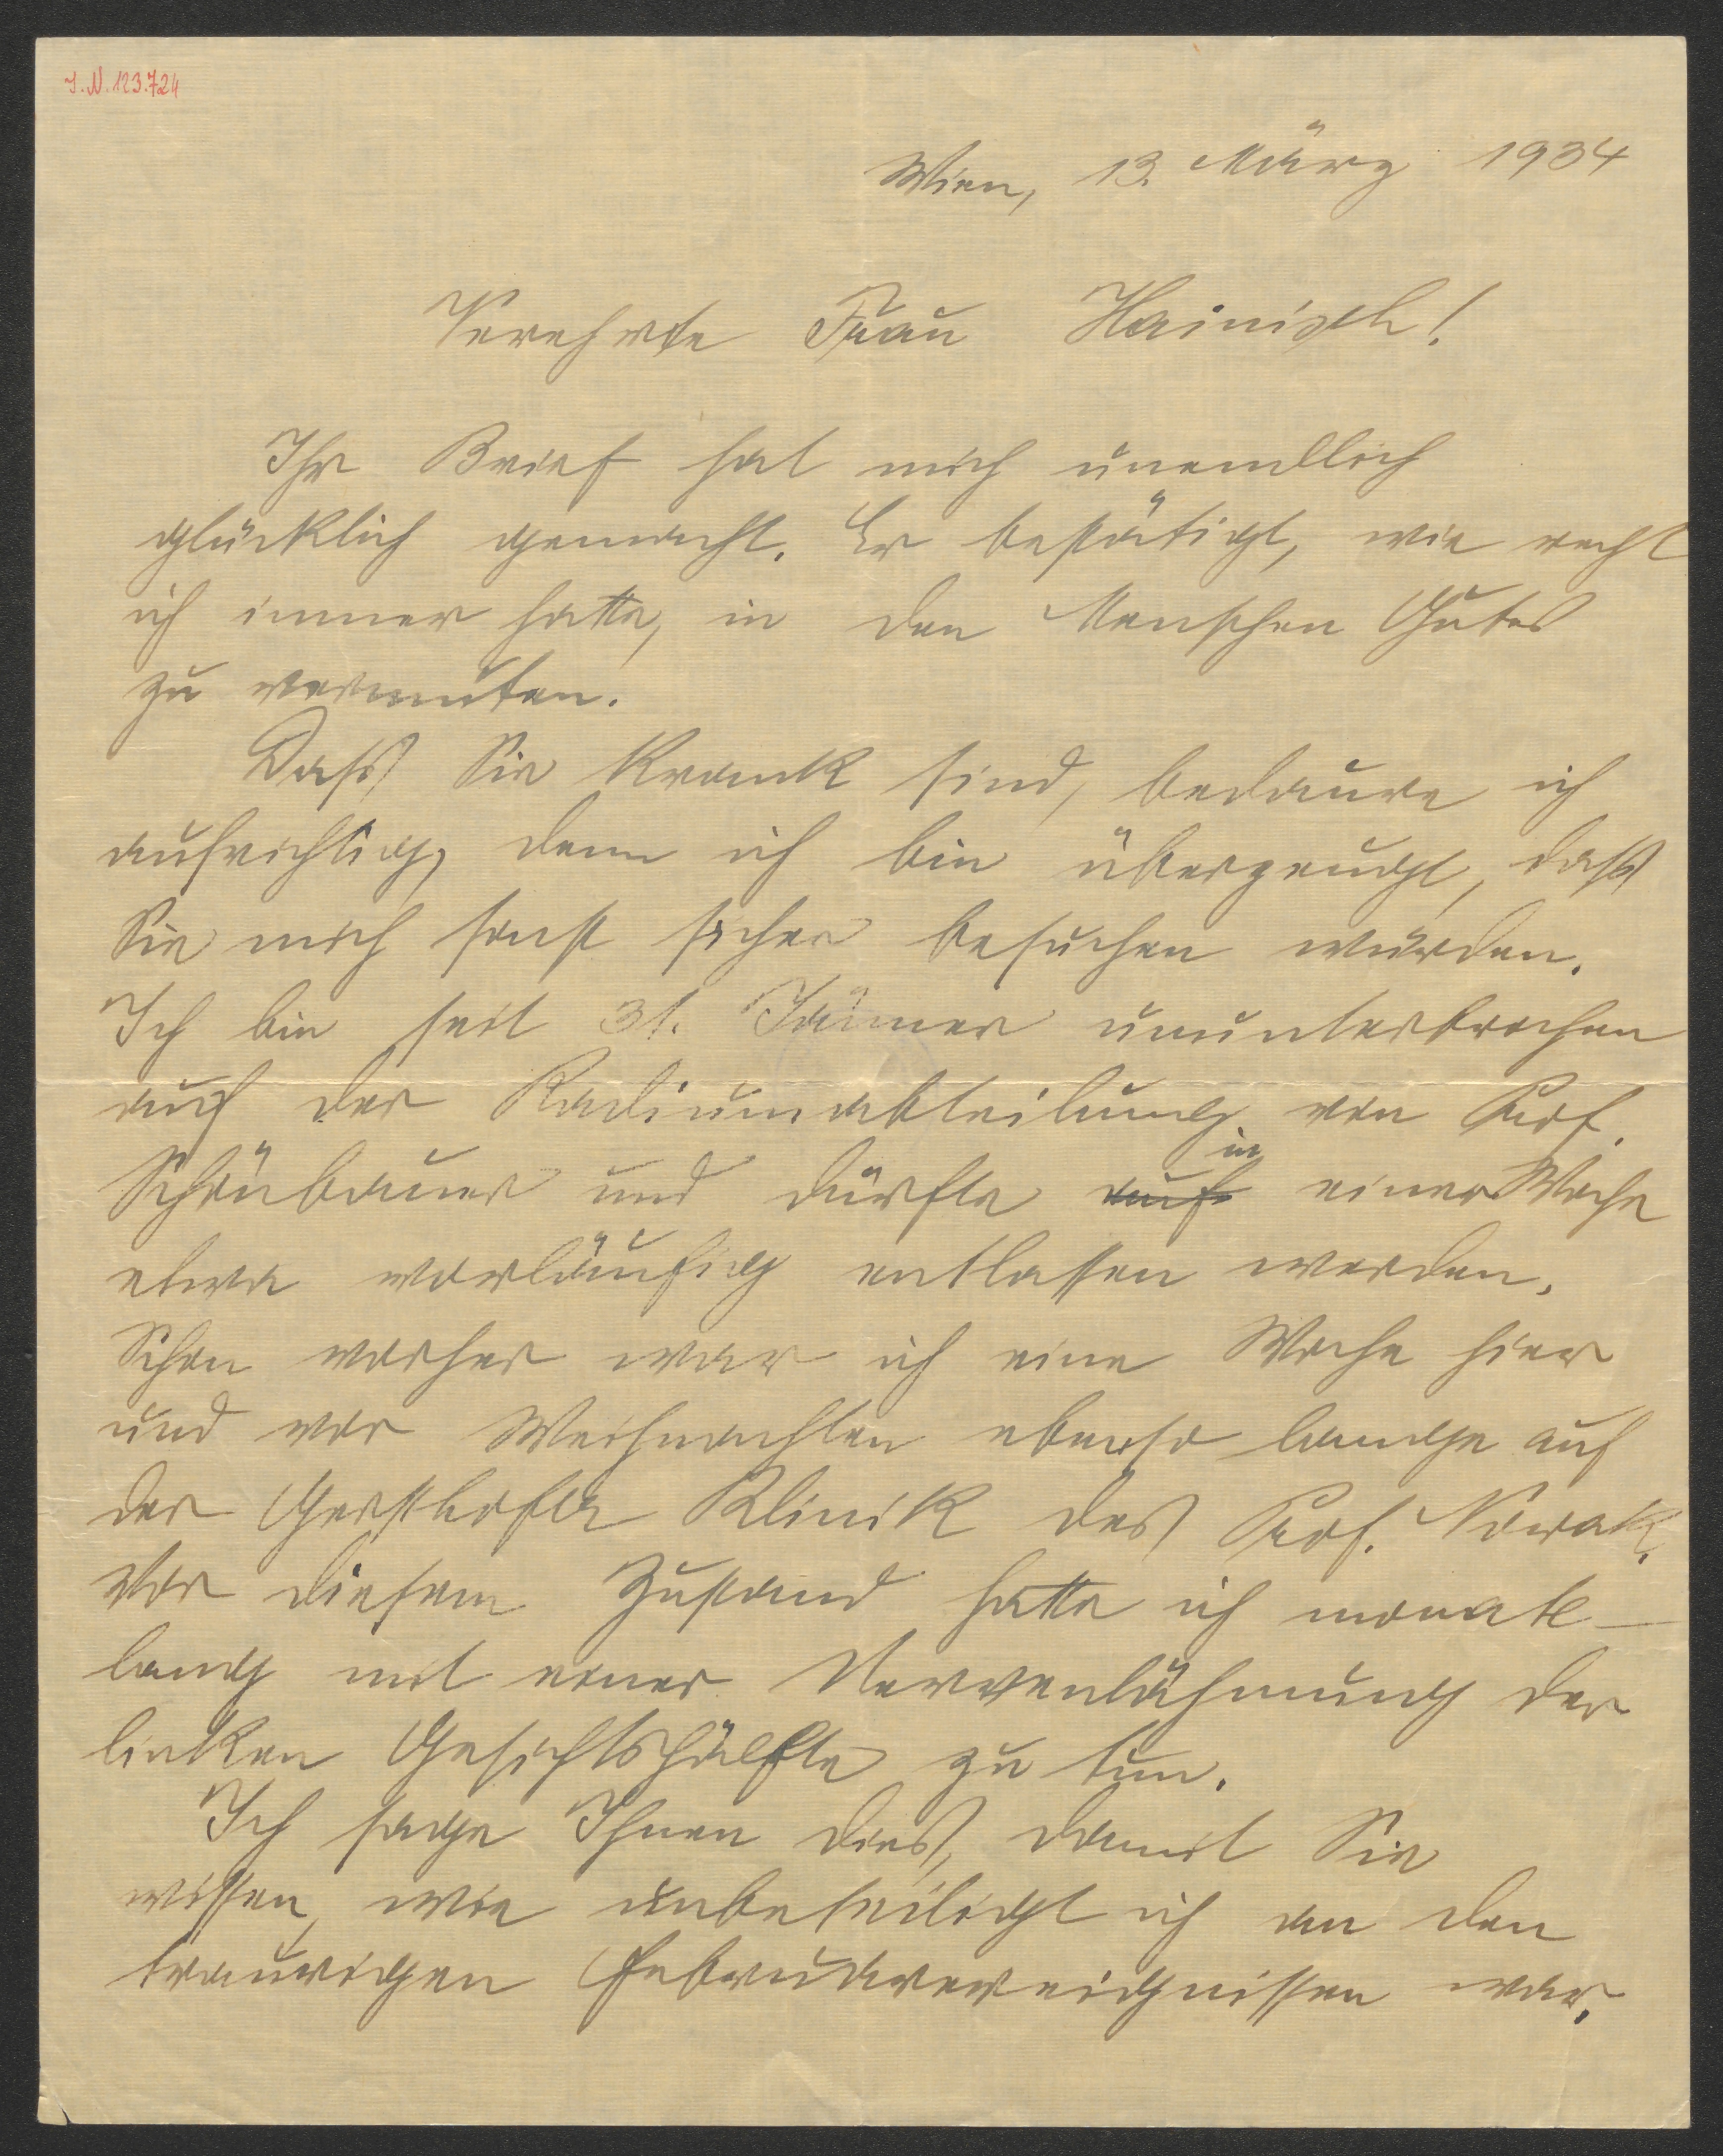 I.N. 123.724
Wien, 13. März 1934
Verehrte Frau Hainisch!
Ihr Brief hat mich unendlich
glücklich gemacht. Er bestätigt, wie recht
ich immer hatte, in den Menschen Gutes
zu vermuten.
Dass Sie krank sind, bedaure ich
aufrichtig, denn ich bin überzeugt, dass
Sie mich sonst sicher besuchen würden.
Ich bin seit 31. Jänner ununterbrochen
auf der Radiumabteilung von Prof.
Schönbauer und dürfte auf in einer Woche
etwa vorläufig entlassen werden.
Schon vorher war ich eine Woche hier
und vor Weihnachten ebenso lange auf
der Gersthofer Klinik des Prof. Nowak.
Vor diesem Zustand hatte ich monate-
lang mit einer Nervenlähmung der
linken Gesichtshälfte zu tun.
Ich sage Ihnen dies, damit Sie
wissen, wie unbeteiligt ich an den
traurigen Februarereignissen war.